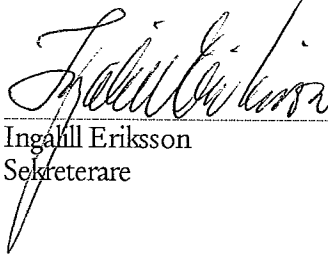 Ingalill Eriksson
Ingalill Eriksson
Sekreterare